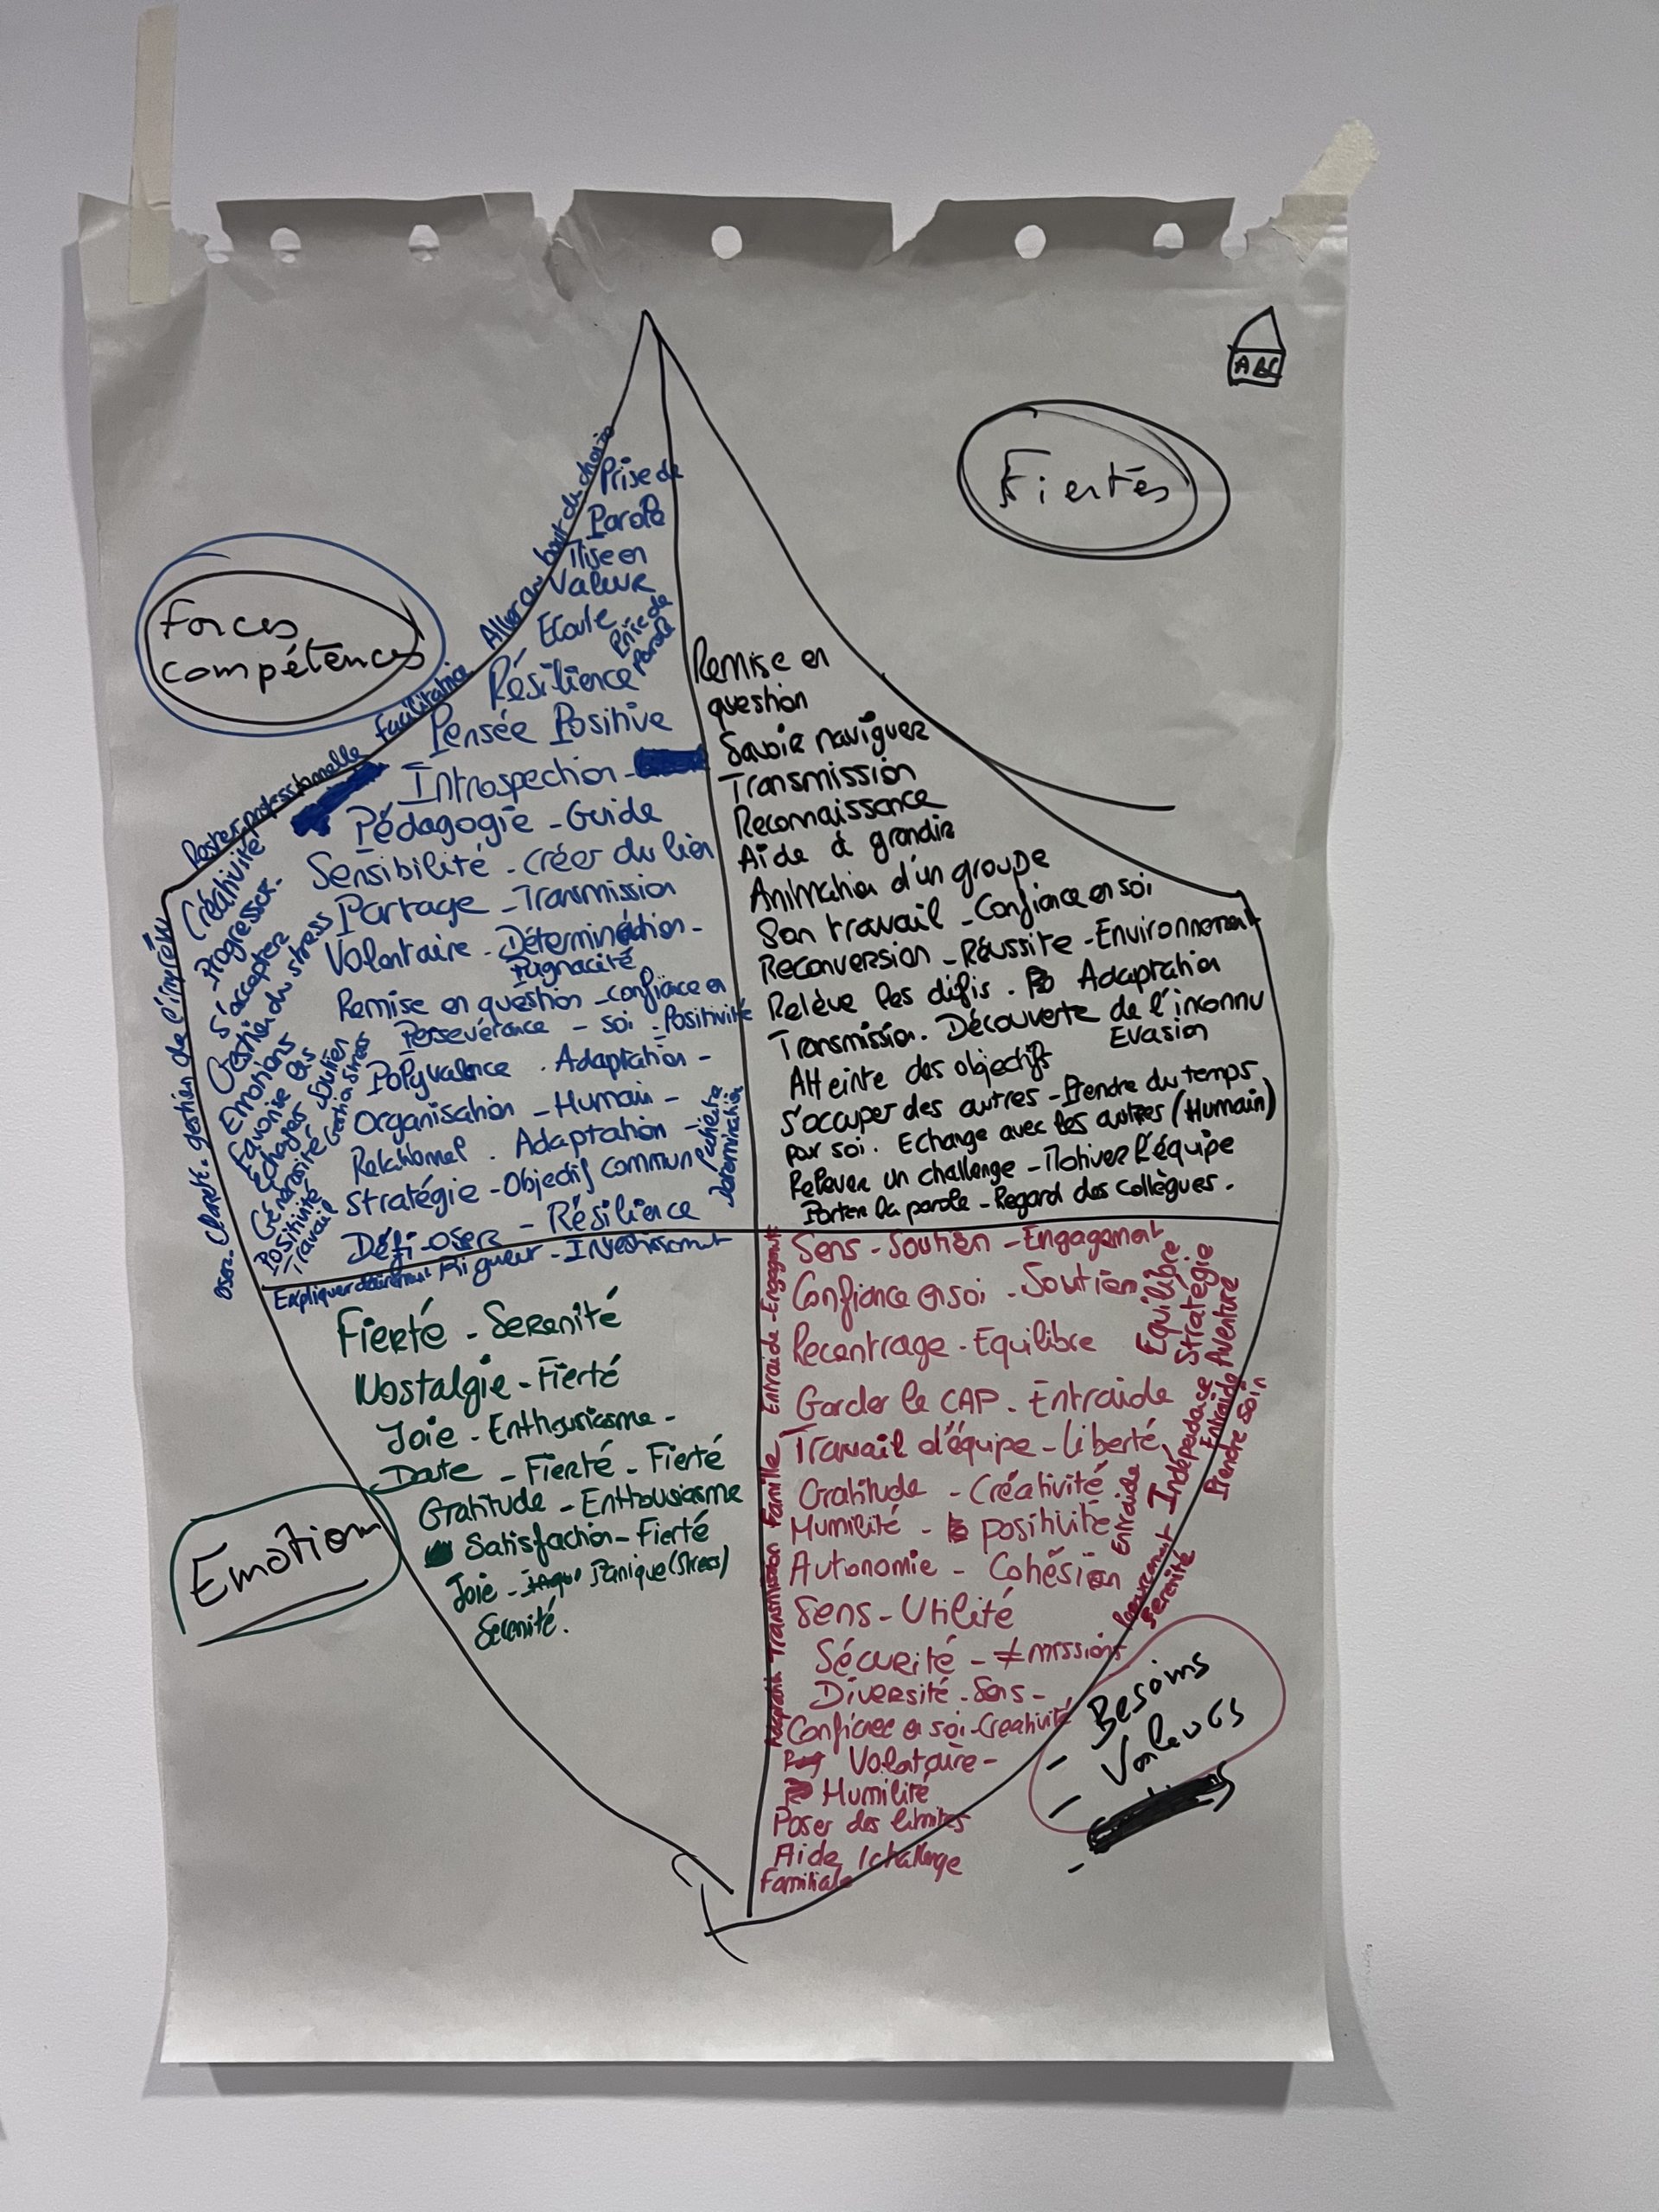 ABC
Fiertés
Forces
compétences
Aller au bout du choix
Prise de
Parole
Mise en
Valeur
Ecoute
Prise de
parole
Résilience
Pensée Positive
Introspection -
Pédagogie - Guide
Sensibilité - Créer du lien
Partage - Transmission
Volontaire - Détermination -
Pugnacité
Remise en question - confiance en
Perseverance - soi - Positivité
Polyvalence . Adaptation -
Organisation - Humain -
Relationnel . Adaptation -
Stratégie - Objectif commun
Défi - oser - Résilience
Rigueur - Investissement
Expliquer clairement
Rester professionnelle
Facilitatrice
Créativité
- Progresser -
S'accepter
Gestion du stress
Emotions
Favorise les
Echanges
Soutien
Gestion Stress
Générosité
Positivité
Travail
Oser. Clarté. gestion de l'imprévu
Détermination
Remise en
question
Savoir naviguer
Transmission
Reconnaissance
Aide à grandir
Animation d'un groupe
Son travail - Confiance en soi
Reconversion - Réussite - Environnement
Relève les défis . Adaptation
Transmission. Découverte de l'inconnu
Evasion
Atteinte des objectifs
S'occuper des autres - Prendre du temps
pour soi. Echange avec les autres (Humain)
Relever un challenge - Motiver l'équipe
Porter la parole - Regard des collègues.
Fierté - Serenité
Nostalgie - Fierté
Joie - Enthousiasme -
Doute - Fierté - Fierté
Gratitude - Enthousiasme
Satisfaction - Fierté
Joie - Panique (Stress)
Serenité.
Emotion
Sens - Soutien - Engagement
Confiance en soi - Soutien
Recentrage - Equilibre
Garder le CAP - Entraide
Travail d'équipe - liberté
Gratitude - Créativité.
Humilité - positivité
Autonomie - Cohésion
Sens - Utilité
Sécurité - ≠ missions
Diversité - Sens -
Confiance en soi - Creativité
Volontaire -
Humilité
Poser des limites
Aide / challenge
Familiale
Entraide - Engagement
Transmission Famille
Equilibre
Stratégie
Aventure
Entraide
Indépendance
Entraide
Prendre Soin
Serenité
- Besoins
- Valeurs
-